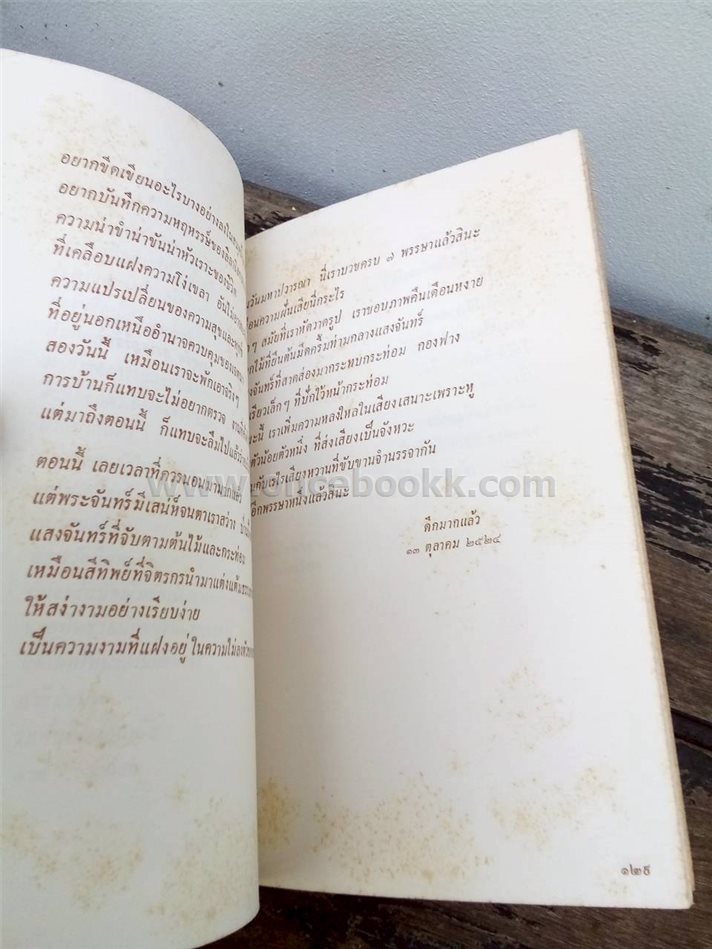 อยากขีดเขียนอะไรบางอย่างลงใน
อยากบันทึกความหฤหรรษ์ของ
ความน่าขำน่าขันน่าหัวเราะของชีวิต
ที่เคลือบแฝงความโง่เขลา อันไม่
ความแปรเปลี่ยนของความสุขและทุกข์
ที่อยู่นอกเหนืออำนาจควบคุมของ
สองวันนี้ เหมือนเราจะพักเอาจริงๆ
การบ้านก็แทบจะไม่อยากตรวจ
แต่มาถึงตอนนี้ ก็แทบจะลืมไปแล้ว
ตอนนี้ เลยเวลาที่ควรนอนมามากแล้ว
แต่พระจันทร์มีเสน่ห์จนตาเราสว่าง
แสงจันทร์ที่จับตามต้นไม้และกระท่อม
เหมือนสีทิพย์ที่จิตรกรนำมาแต่งแต้ม
ให้สง่างามอย่างเรียบง่าย
เป็นความงามที่แฝงอยู่ในความไม่
วันมหาปวารณา นี่เราบวชครบ ๗ พรรษาแล้วสินะ
ความฝันเสียนี่กระไร
ๆ สมัยที่เราหัดวาดรูป เราชอบภาพคืนเดือนหงาย
ไม้ที่ยืนต้นมืดครึ้มท่ามกลางแสงจันทร์
จันทร์ที่สาดส่องมากระทบกระท่อม กองฟาง
เรียวเล็กๆ ที่ปักไว้หน้ากระท่อม
นี้ เราเพิ่มความหลงใหลในเสียงเสนาะเพราะหู
ตัวน้อยตัวหนึ่ง ที่ส่งเสียงเป็นจังหวะ
กับเรไรเสียงหวานที่ขับขานจำนรรจากัน
อีกพรรษาหนึ่งแล้วสินะ
ดึกมากแล้ว
๑๓ ตุลาคม ๒๕๒๔
๑๒๕